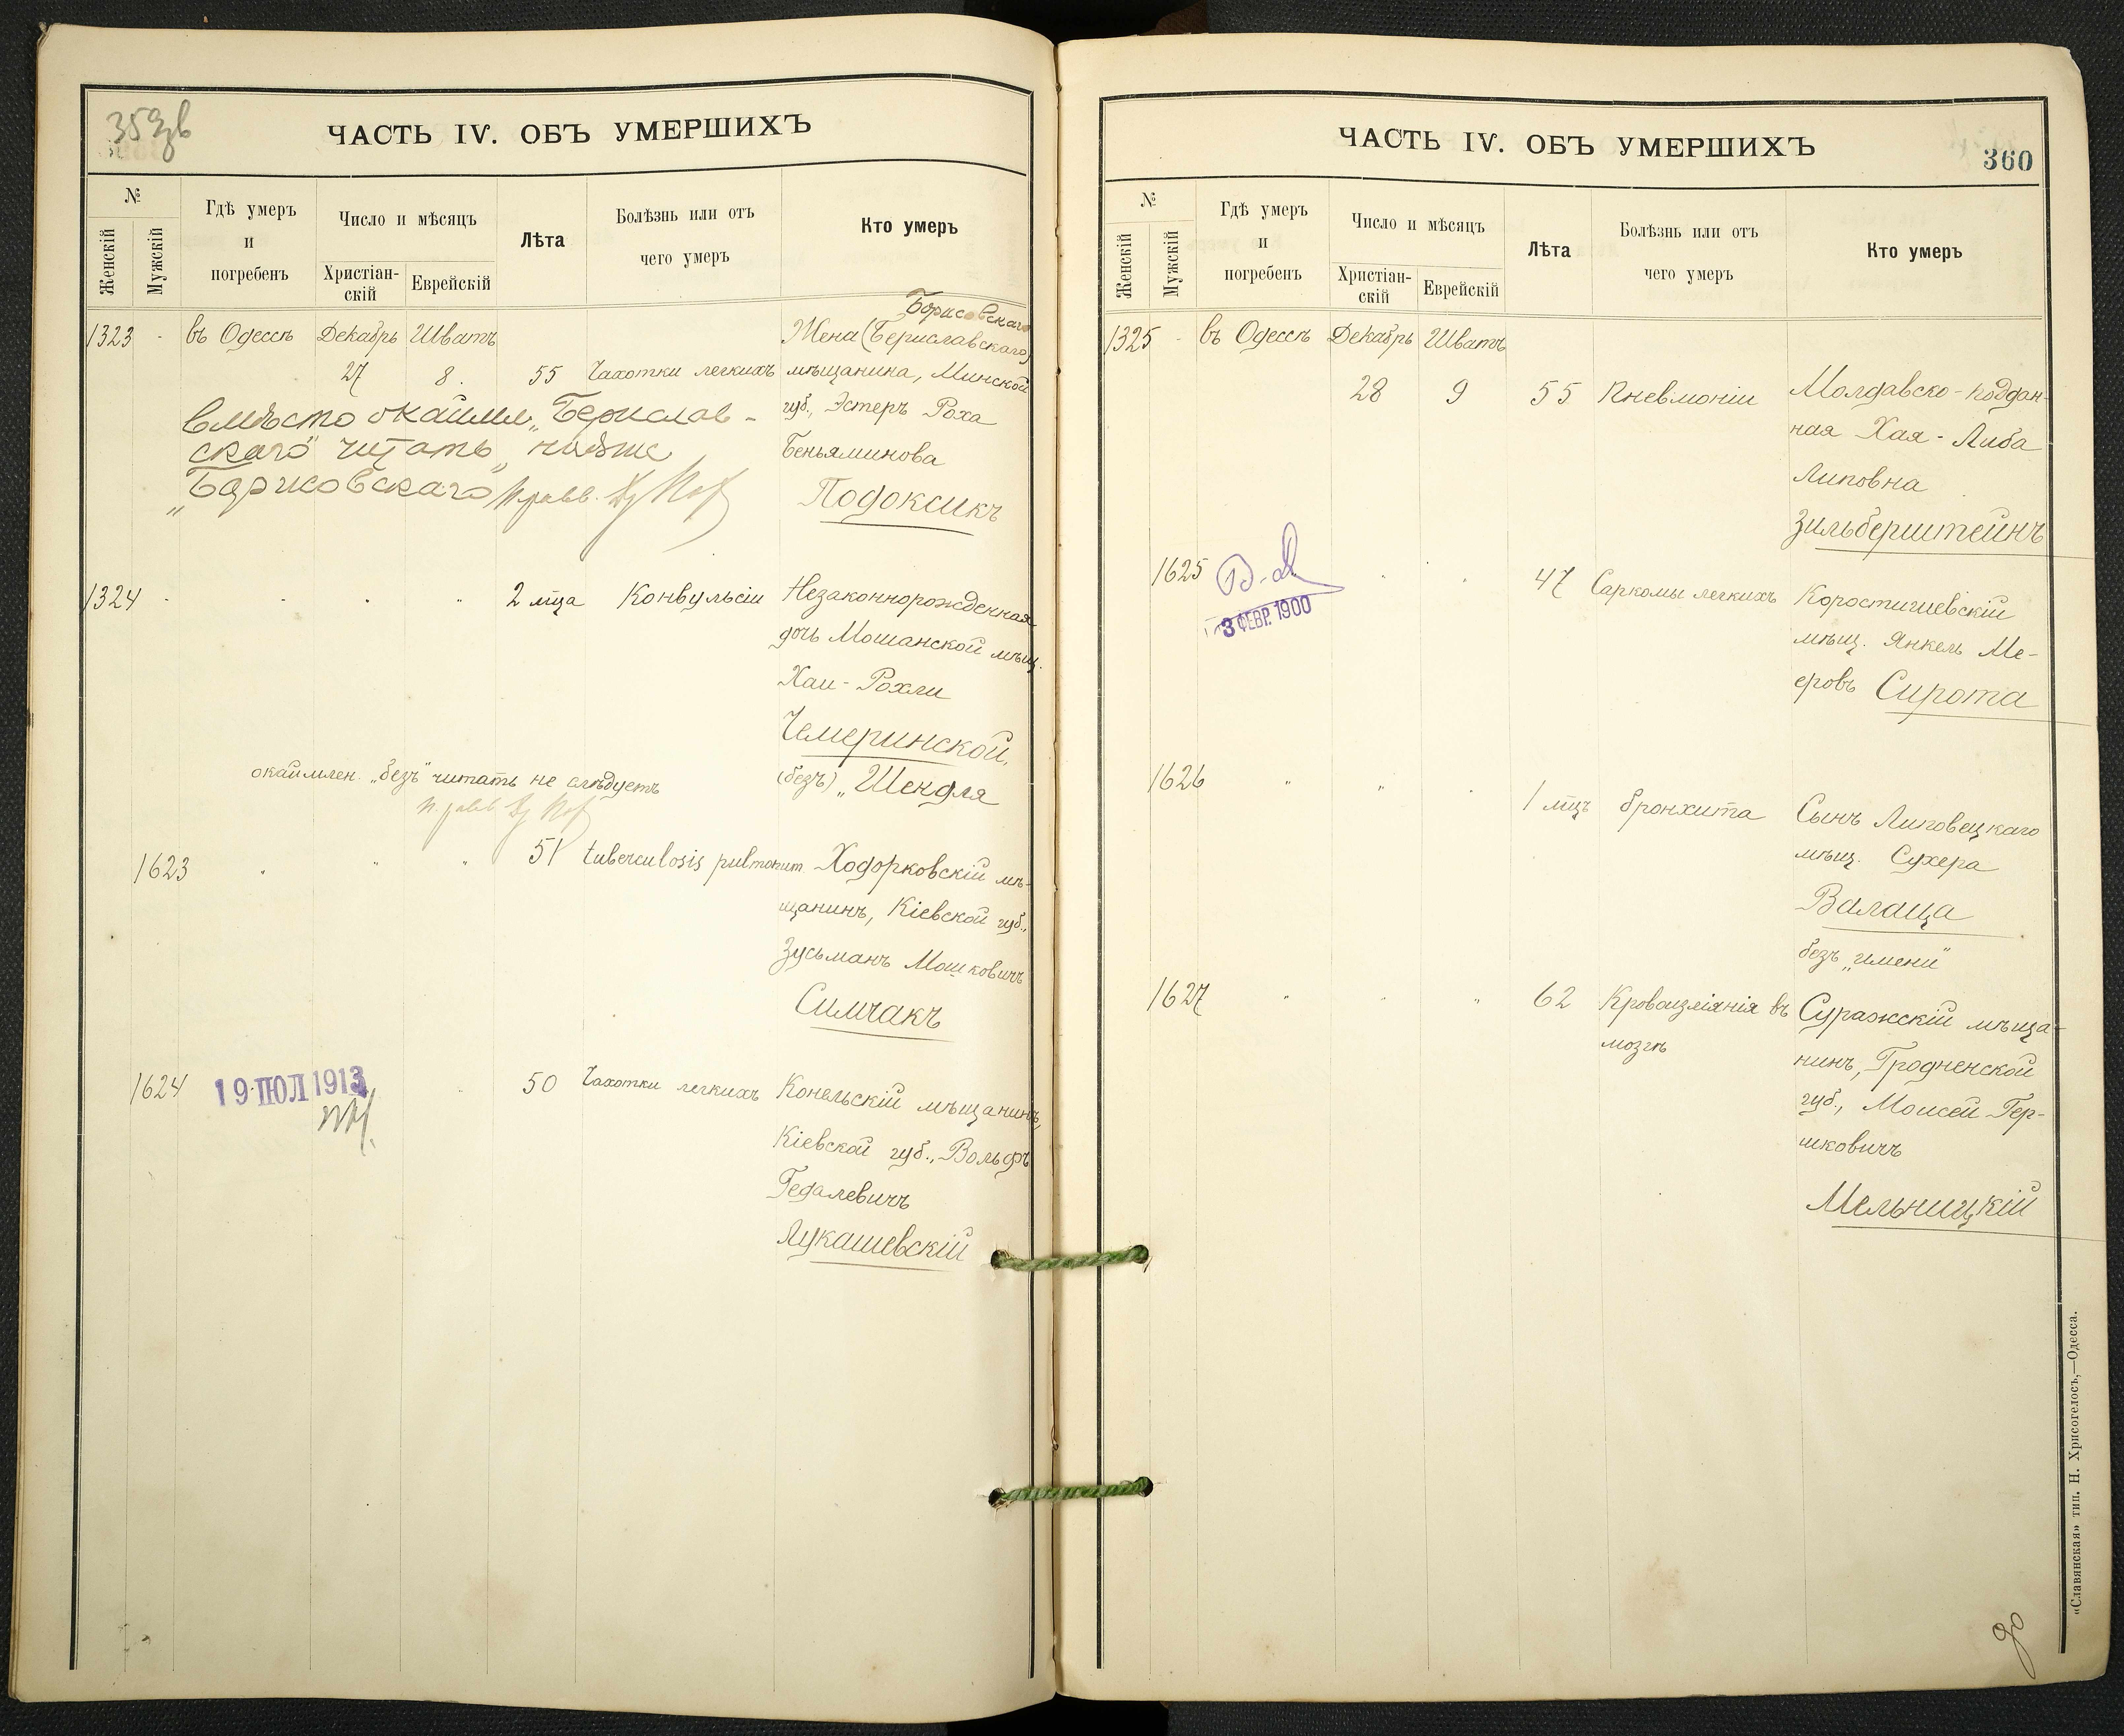 359в
ЧАСТЬ IV. ОБЪ УМЕРШИХЪ
№
Женскій
Мужскій
Гдѣ умеръ
и
погребенъ
Число и мѣсяцъ
Христіан-
скій
Еврейскій
Лѣта
Болѣзнь или отъ
чего умеръ
Кто умеръ
Борисовскаго
1323 въ Одессѣ Декабрь Шватъ Жена (Бериславскаго)
27 8. 55 Чахотки легкихъ мѣщанина, Минской
губ., Эстеръ Роха
Беньяминова
Подоксикъ
вмѣсто окаймл. „Берислав-
скаго" читать ниже
„Борисовскаго"
1324 2 мца Конвульсіи Незаконнорожденная
дочь Мошанской мѣщ.
Хаи-Рохли
Чемеринской,
(безъ) „Шендля
окаймлен. „безъ" читать не слѣдуетъ
1623 " " 51 tuberculosis pulmonum Ходорковскій мѣ-
щанинъ, Кіевской губ.,
Зусьманъ Мошковичъ
Симчакъ
1624 19 ІЮЛ 1913 50 Чахотки легкихъ Конельскій мѣщанинъ,
Кіевской губ., Вольфъ
Гедалевичъ
Лукашевскій
ЧАСТЬ IV. ОБЪ УМЕРШИХЪ
360
№
Женскій
Мужскій
Гдѣ умеръ
и
погребенъ
Число и мѣсяцъ
Христіан-
скій
Еврейскій
Лѣта
Болѣзнь или отъ
чего умеръ
Кто умеръ
1325 въ Одессѣ Декабрь Шватъ
28 9 55 Пневмоніи Молдавско-поддан-
ная Хая-Либа
Липовна
Зильберштейнъ
1625 47 Саркомы легкихъ Коростишевскій
3 ФЕВР. 1900
мѣщ. Янкель Ме-
еровъ Сирота
1626 " " 1 мцъ бронхита Сынъ Липовецкаго
мѣщ. Сухера
Валаца
безъ „имени"
1627 " " " 62 Кровоизліянія въ Суражскій мѣща-
мозгъ
нинъ, Гродненской
губ., Моисей Гер-
шковичъ
Мельницкій
«Славянская» тип. Н. Хрисогелосъ,—Одесса.